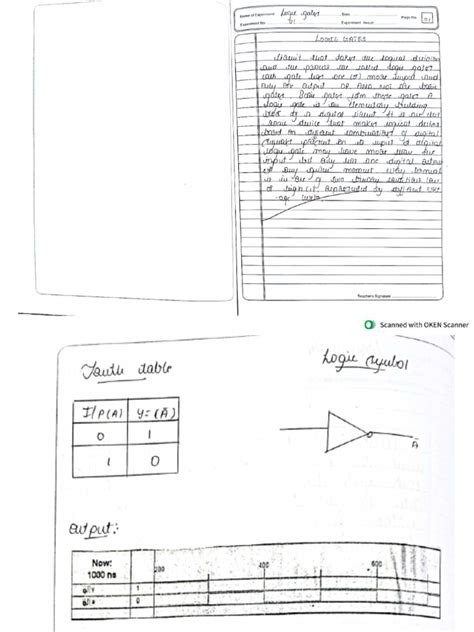 Name of Experiment Logic gates
Date of Experiment
Page No. 01
Experiment No. 01
Experiment Result
LOGIC GATES
Circuit that takes the logical decision
and the process are called logic gates.
each gate has one (or) more input and
only one output. OR, AND, NOT are the basic
gates. Basic gates form these gates. A
logic gate is an elementary building
block of a digital circuit. It is
device that makes logical decision
based on different combinations of digital
present on its input. A digital
Logic gate may have more than one
input but only has one digital output
At any given moment every terminal
is in one of two binary conditions low
or high (1) represented by different volt-
age
Teacher's Signature
Scanned with OKEN Scanner
Truth table
Logic symbol
I/P(A) Y=(Ā)
0 1
1 0
Ā
output:
Now:
1000 ns
200 400 600
1
0